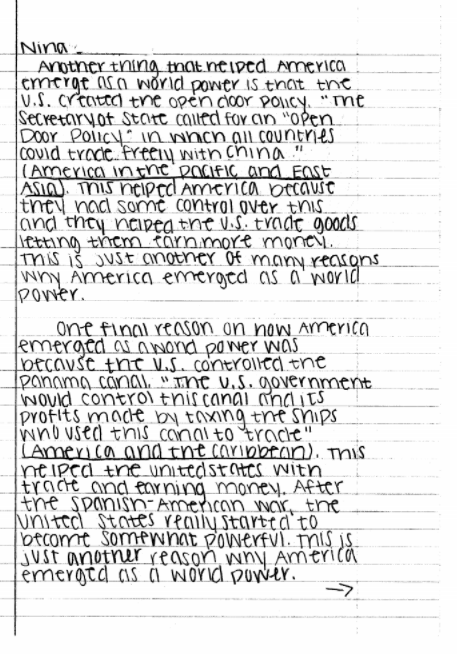 Nina -
Another thing that helped America
emerge as a world power is that the
U.S. created the open door policy. "The
Secretary of State called for an "Open
Door Policy" in which all countries
could trade freely with China."
(America in the Pacific and East
Asia). This helped America because
they had some control over this
and they helped the U.S. trade goods
letting them earn more money.
This is just another of many reasons
why America emerged as a world
power.
One final reason on how America
emerged as a world power was
because the U.S. controlled the
Panama canal. "The U.S. government
would control this canal and its
profits made by taxing the ships
who used this canal to trade"
(America and the Caribbean). This
helped the united states with
trade and earning money. After
the Spanish-American war, the
united states really started to
become somewhat powerful. This is
just another reason why America
emerged as a world power.
→